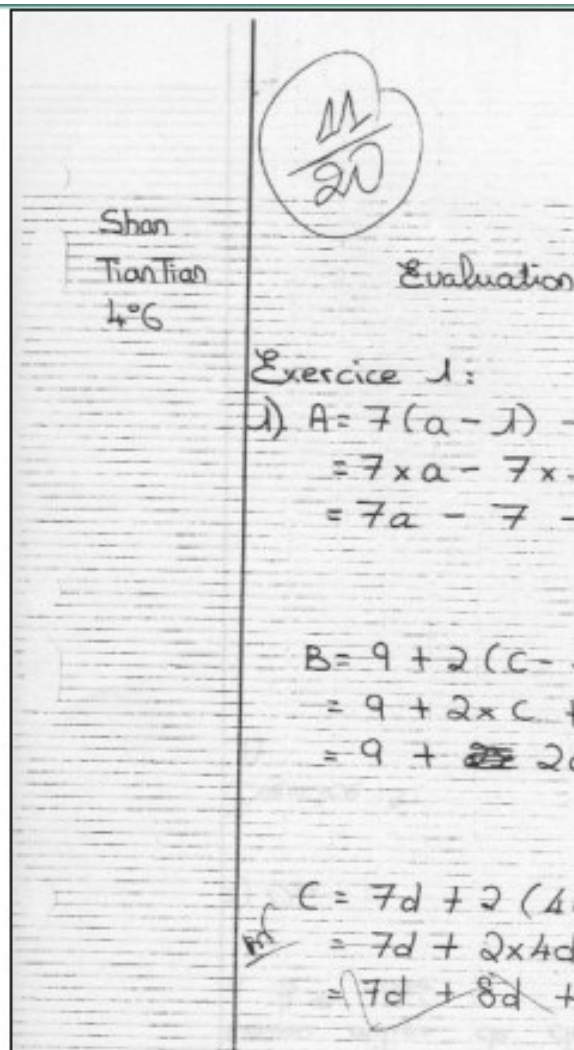 11
20
Shan
TianTian
4°6
Evaluation
Exercice 1:
1) A = 7(a - 1) -
= 7 x a - 7 x
= 7a - 7 -
B = 9 + 2 (c -
= 9 + 2 x c +
= 9 + 2c
C = 7d + 2 (4
= 7d + 2x4d
= 7d + 8d +